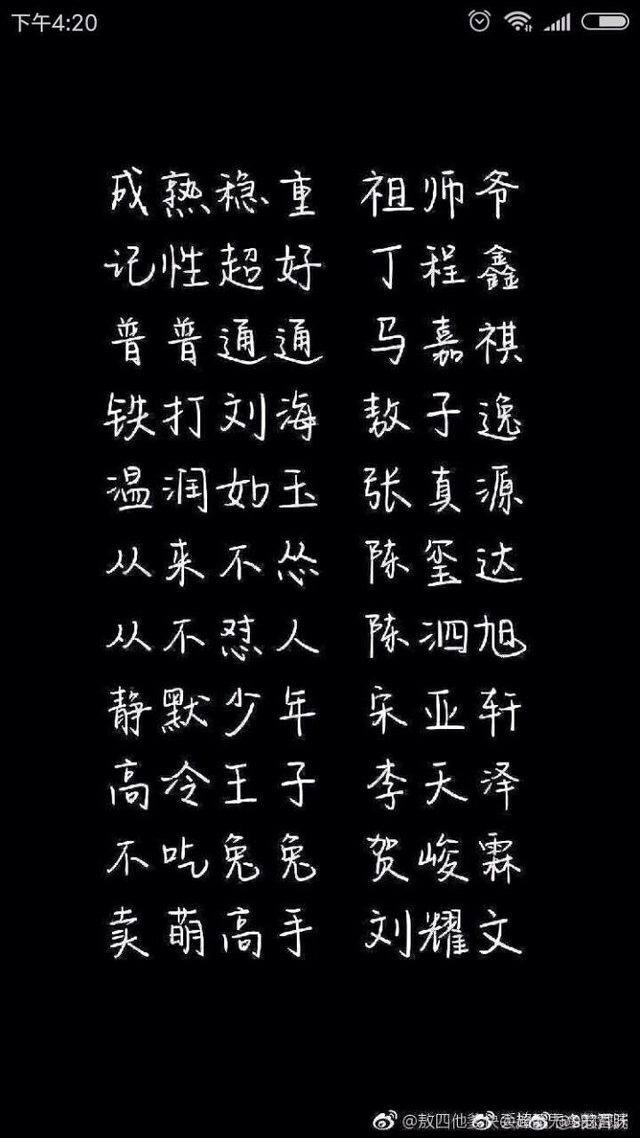 下午4:20
成熟稳重 祖师爷
记性超好 丁程鑫
普普通通 马嘉祺
铁打刘海 敖子逸
温润如玉 张真源
从来不怂 陈玺达
从不怼人 陈泗旭
静默少年 宋亚轩
高冷王子 李天泽
不吃兔兔 贺峻霖
卖萌高手 刘耀文
@敖四他爹快